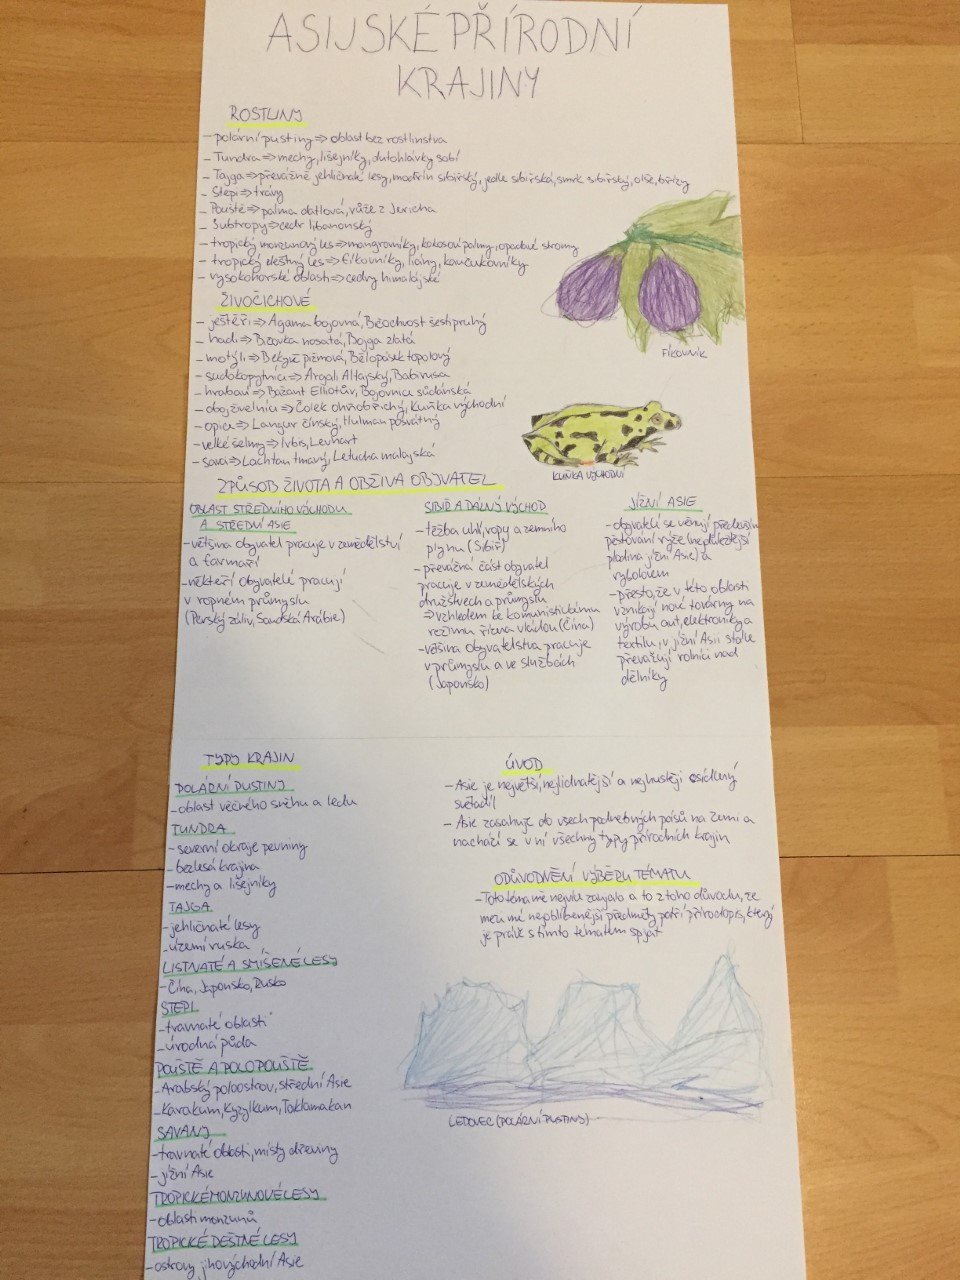 ASIJSKÉ PŘÍRODNÍ
KRAJINY
ROSTLINY
- polární pustiny => oblast bez rostlinstva
- Tundra => mechy, lišejníky, dutohlávky sobí
- Tajga => převážně jehličnaté lesy, modřín sibiřský, jedle sibiřská, smrk sibiřský, olše, břízy
- Stepi => trávy
- Pouště => palma datlová, růže z Jericha
- Subtropy => cedr libanonský
- tropický monzunový les => mangrovníky, kokosové palmy, opadavé stromy
- tropický deštný les => fíkovníky, liány, kaučukovníky
- vysokohorské oblasti => cedry himalájské
FÍKOVNÍK
ŽIVOČICHOVÉ
- ještěři => Agama bojovná, Běhochvost šestipruhý
- hadi => Bičovka nosatá, Bojga zlatá
- motýli => Bekyně pižmová, Bělopásek topolový
- sudokopytníci => Argali Altajský, Babirusa
- hrabaví => Bažant Elliotův, Bojovnice súdánská
- obojživelníci => Čolek ohňobřichý, Kuňka východní
- opice => Langur čínský, Hulman posvátný
- velké šelmy => Irbis, Levhart
- savci => Lachtan tmavý, Letucha malajská
KUŇKA VÝCHODNÍ
ZPŮSOB ŽIVOTA A OBŽIVA OBYVATEL
OBLAST STŘEDNÍHO VÝCHODU
A STŘEDNÍ ASIE
- většina obyvatel pracuje v zemědělství
a farmaří
- někteří obyvatelé pracují
v ropném průmyslu
(Perský záliv, Saudská Arábie)
SIBIŘ A DÁLNÝ VÝCHOD
- těžba uhlí, ropy a zemního
plynu (Sibiř)
- převážná část obyvatel
pracuje v zemědělských
družstvech a průmyslu
=> vzhledem ke komunistickému
režimu řízena vládou (Čína)
- většina obyvatelstva pracuje
v průmyslu a ve službách
(Japonsko)
JIŽNÍ ASIE
- obyvatelé se věnují především
pěstování rýže (nejdůležitější
plodina jižní Asie) a
rybolovem
- přesto, že v této oblasti
vznikají nové továrny na
výrobu aut, elektroniky a
textilu, v jižní Asii stále
převažují rolníci nad
dělníky
TYPY KRAJIN
POLÁRNÍ PUSTINY
- oblast věčného sněhu a ledu
TUNDRA
- severní okraje pevniny
- bezlesá krajina
- mechy a lišejníky
TAJGA
- jehličnaté lesy
- území ruska
LISTNATÉ A SMÍŠENÉ LESY
- Čína, Japonsko, Rusko
STEPI
- travnaté oblasti
- úrodná půda
POUŠTĚ A POLOPOUŠTĚ
- Arabský poloostrov, střední Asie
- Karakum, Kyzylkum, Taklamakan
SAVANY
- travnaté oblasti, místy dřeviny
- jižní Asie
TROPICKÉ MONZUNOVÉ LESY
- oblasti monzunů
TROPICKÉ DEŠTNÉ LESY
- ostrovy jihovýchodní Asie
ÚVOD
- Asie je největší, nejlidnatější a nejhustěji osídlený
světadíl
- Asie zasahuje do všech podnebných pásů na Zemi a
nachází se v ní všechny typy přírodních krajin
ODŮVODNĚNÍ VÝBĚRU TÉMATU
- Toto téma mě nejvíc zaujalo a to z toho důvodu, že
mezi mé nejoblíbenější předměty patří přírodopis, který
je právě s tímto tématem spjat
LEDOVEC (POLÁRNÍ PUSTINY)